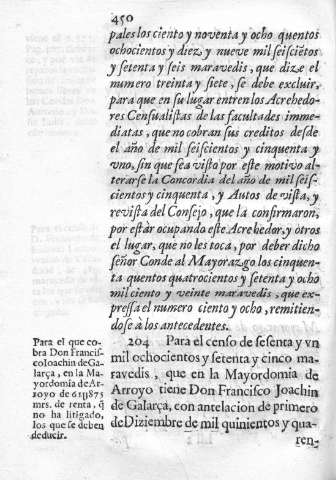 450
pales los ciento y noventa y ocho quentos
ochocientos y diez y nueve mil seiscietos
y setenta y seis maravedis, que dize el
numero treinta y siete, se debe excluir,
para que en su lugar entren los Acrehedo-
res Censualistas de las facultades imme-
diatas, que no cobran sus creditos desde
el año de mil seiscientos y cinquenta y
vno, sin que sea visto por este motivo al-
terarse la Concordia del año de mil seis-
cientos y cinquenta, y Autos de vista, y
revista del Consejo, que la confirmaron,
por estàr ocupando este Acrehedor, y otros
el lugar, que no les toca, por deber dicho
señor Conde al Mayorazgo los cinquen-
ta quentos quatrocientos y setenta y ocho
mil ciento y veinte maravedis, que ex-
pressa el numero ciento y ocho, remitien-
dose à los antecedentes.
Para el que co-
bra Don Francis-
co Ioachin de Ga-
larça, en la Ma-
yordomia de Ar-
royo de 61U875
mrs. de renta, q̃
no ha litigado,
los que se deben
deducir.
204 Para el censo de sesenta y vn
mil ochocientos y setenta y cinco ma-
ravedis, que en la Mayordomia de
Arroyo tiene Don Francisco Joachin
de Galarça, con antelacion de primero
de Diziembre de mil quinientos y qua-
ren-